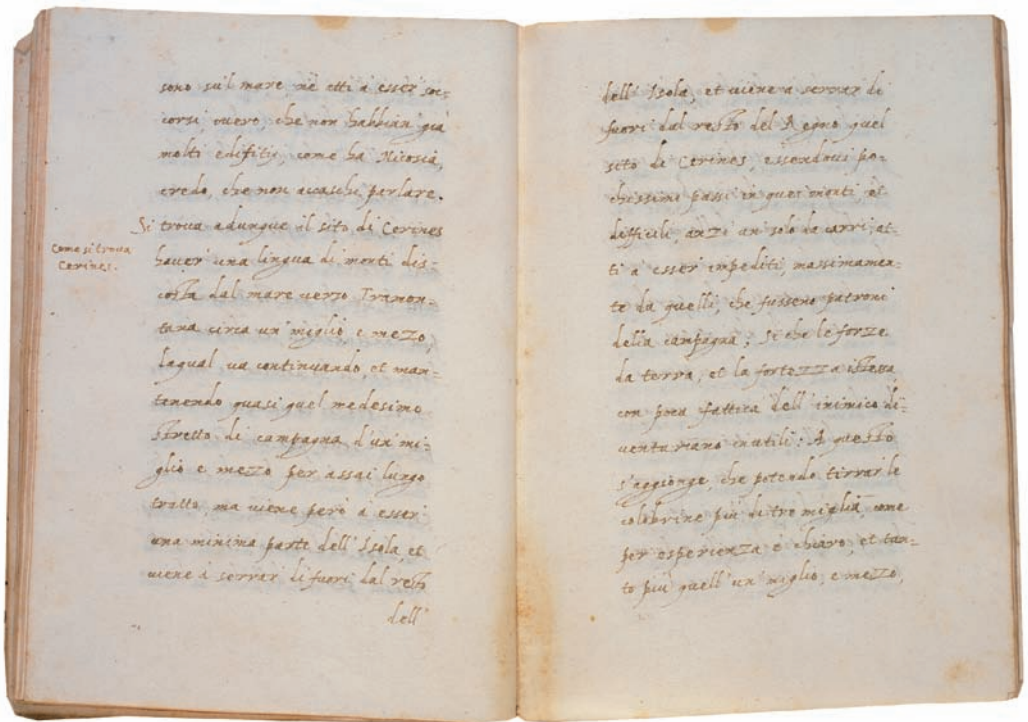 sono sul mare, nè atti à esser soc=
corsi, overo, che non habbian già
molti edifitij, come ha Nicosia,
credo, che non accaschi parlare.
Si trova adunque il sito di Cerines
Come si trova
Cerines.
haver una lingua di monti dis=
costa dal mare verso Tramon=
tana circa un' miglio, e mezo,
laqual va continuando, et man=
tenendo quasi quel medesimo
stretto di campagna d'un' mi=
glio e mezo per assai lungo
tratto, ma viene però à esser
una minima parte dell' Isola, et
viene à serrar di fuori dal resto
dell'
dell' Isola, et viene a serrar di
fuori dal resto del Regno quel
sito di Cerines, essendovi po=
chissimi passi in quei monti, et
difficili, anzi un' solo da carri, at=
ti à esser impediti, massimamen=
te da quelli, che fusseno patroni
della campagna; Si che le forze
da terra, et la fortezza istessa
con poca fattica dell' inimico di=
venturiano inutili: A questo
s'aggionge, che potendo tirrar le
colobrine più di tre miglia, come
per esperienza è chiaro, et tan=
to più quell' un' miglio, e mezo,